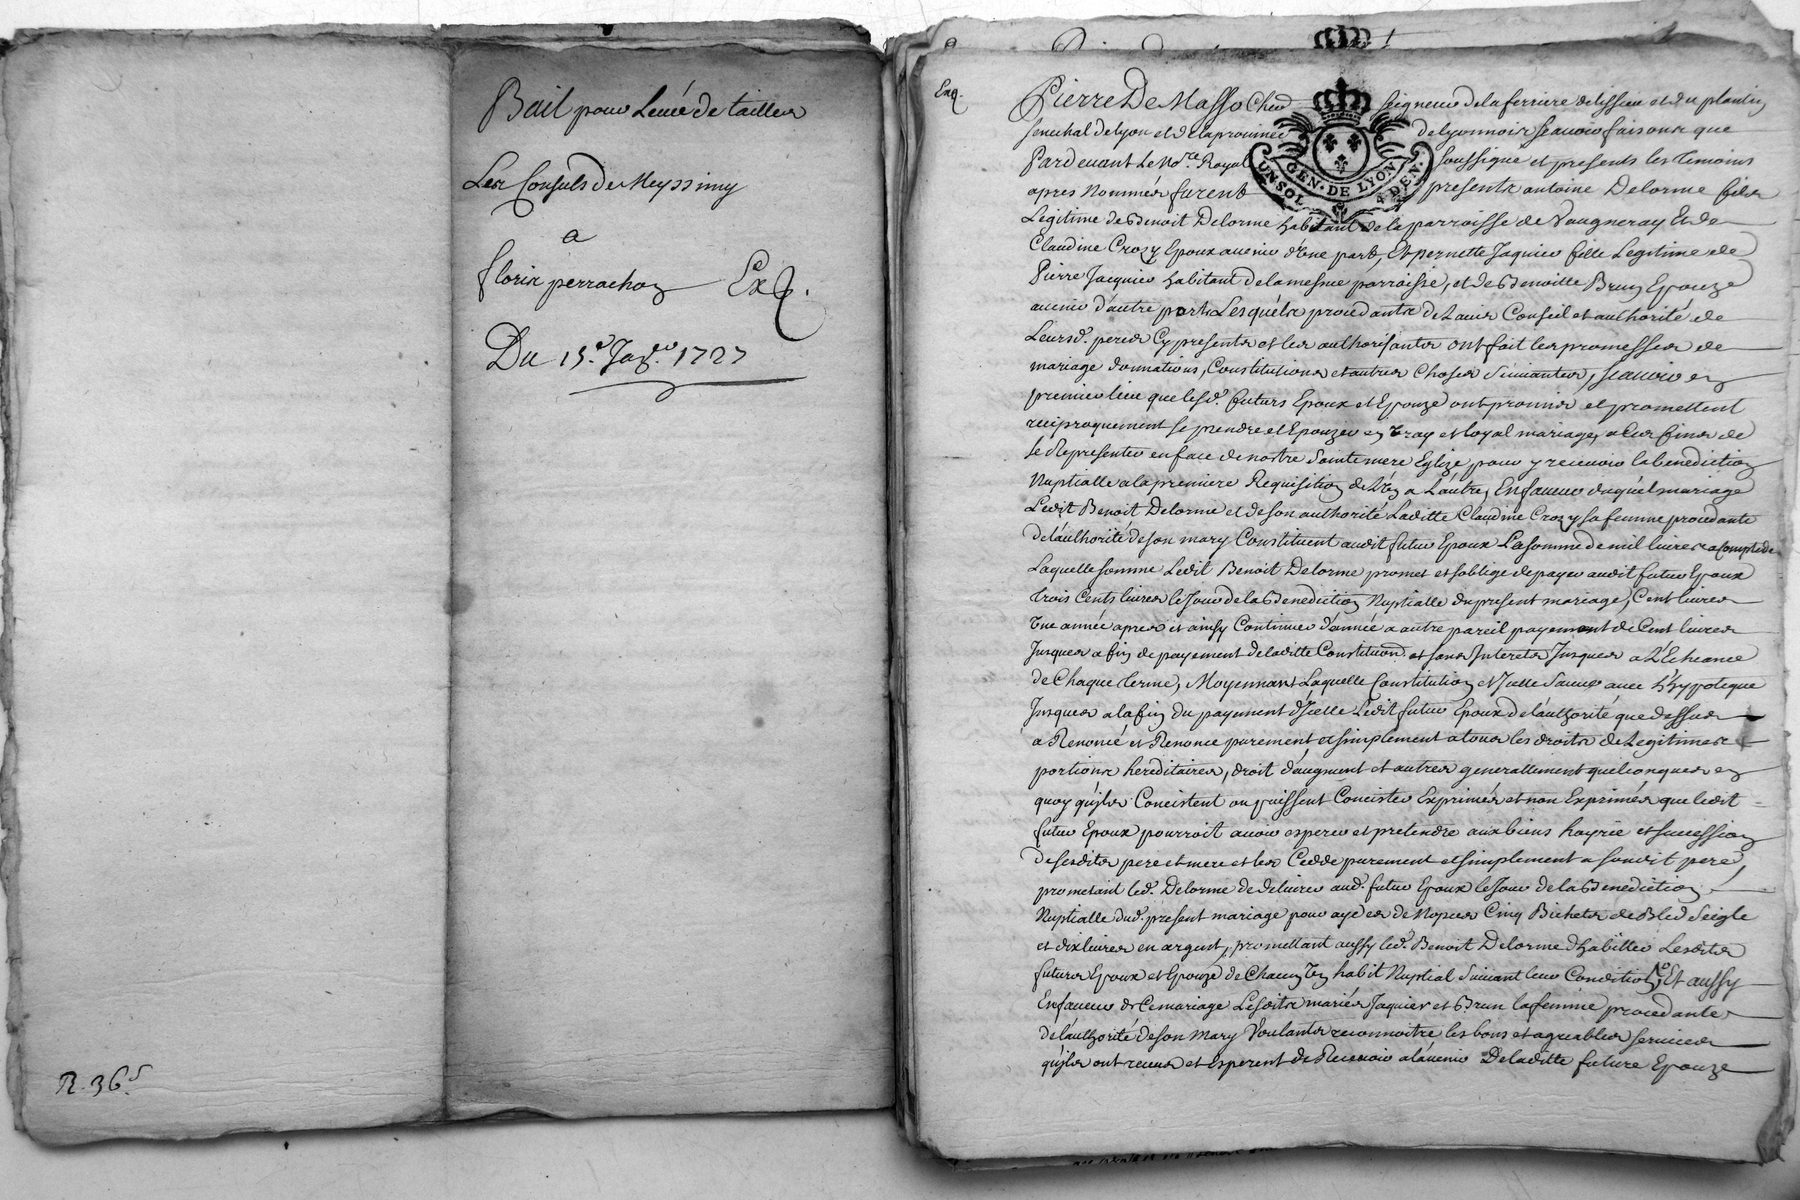 Bail pour Leuée de tailles
Les Consuls de Meyssimy
a
floris perrachon Exp.
Du 15.e Jar. 1727
R. 36 s
Exp.
Pierre De Masso Cher seigneur de la ferriere de lissieu et du plantin
senechal de lyon et de la prouince de lyonnois scauoir faisons que
Pardeuant Le No.re Royal soussigné et presents les temoins
apres Nommés furent presents antoine Delorme fils
UN SOL GEN. DE LYON 4 DEN.
Legitime de Benoit Delorme habitant de la parroisse de Vaugneray Et de
Claudine Crozy Epoux auenir d'une part, Et pernette Jaquier fille Legitime de
Pierre Jacquier habitant de la mesme parroisse, et de Benoitte Brun Epouze
auenir d'autre part Lesquéls procedants de Lauis Conseil et authorité de
Leursd. peres Cy presents et les authorisants ont fait les promesses de
mariage donnations, Constitutions et autres choses suiuantes, scauoir en
premier lieu que lesd. futurs Epoux et Epouze ont promis et promettent
reciproquement se prendre et Epouzer en vray et loyal mariage, a ces fins de
se Representer en face de nostre Sainte mere Eglize, pour y receuoir la benediction
Nuptialle a la premiere Requisition de L'un a Lautre, En faueur duquél mariage
Ledit Benoit Delorme et de son authorité Laditte Claudine Crozy sa femme procedante
De lauthorité de son mary Constituent audit futur Epoux La somme de mil liures a Compte de
Laquelle somme Ledit Benoit Delorme promet et soblige de payer audit futur Epoux
trois Cents liures le Jour de la Benediction Nuptialle du present mariage, Cent liures
Une année apres et ainsy Continuer d'année a autre pareil payement de Cent liures
Jusques a fin de payement de laditte Constitution et sans Interets Jusques a L'Echeance
de Chaque terme, Moyennant Laquelle Constitution et Jcelle Sauue auec L'hypoteque
Jusques a la fin du payement d'Jcelle Ledit futur Epoux de lauthorité que dessus
a Renoncé et Renonce purement et simplement a tous les droits de Legitimes
portions hereditaires, droit daugment et autres generallement quelconques en
quoy quils Concistent ou puissent Concister Exprimés et non Exprimés que ledit
futur Epoux pourroit auoir esperer et pretendre aux biens hoyrie et succession
de sesdits pere et mere et les Cedde purement et simplement a sondit pere,
prometant led. Delorme de deliurer aud. futur Epoux le Jour de la Benediction
Nuptialle dud. present mariage pour ayde de Nopces Cinq Bichets de Bled Seigle
et dix liures en argent, promettant aussy led. Benoit Delorme d'habiller Lesdits
futurs Epoux et Epouze de Chacun Un habit Nuptial Suiuant leur Condition, Et aussy
En faueur de Ce mariage Lesdits mariés Jaquier et Brun la femme procedante
de lauthorité de son Mary Voulants reconnoitre les bons et agreables seruices
quils ont receus et Esperent de Receuoir a lauenir De laditte future Epouze